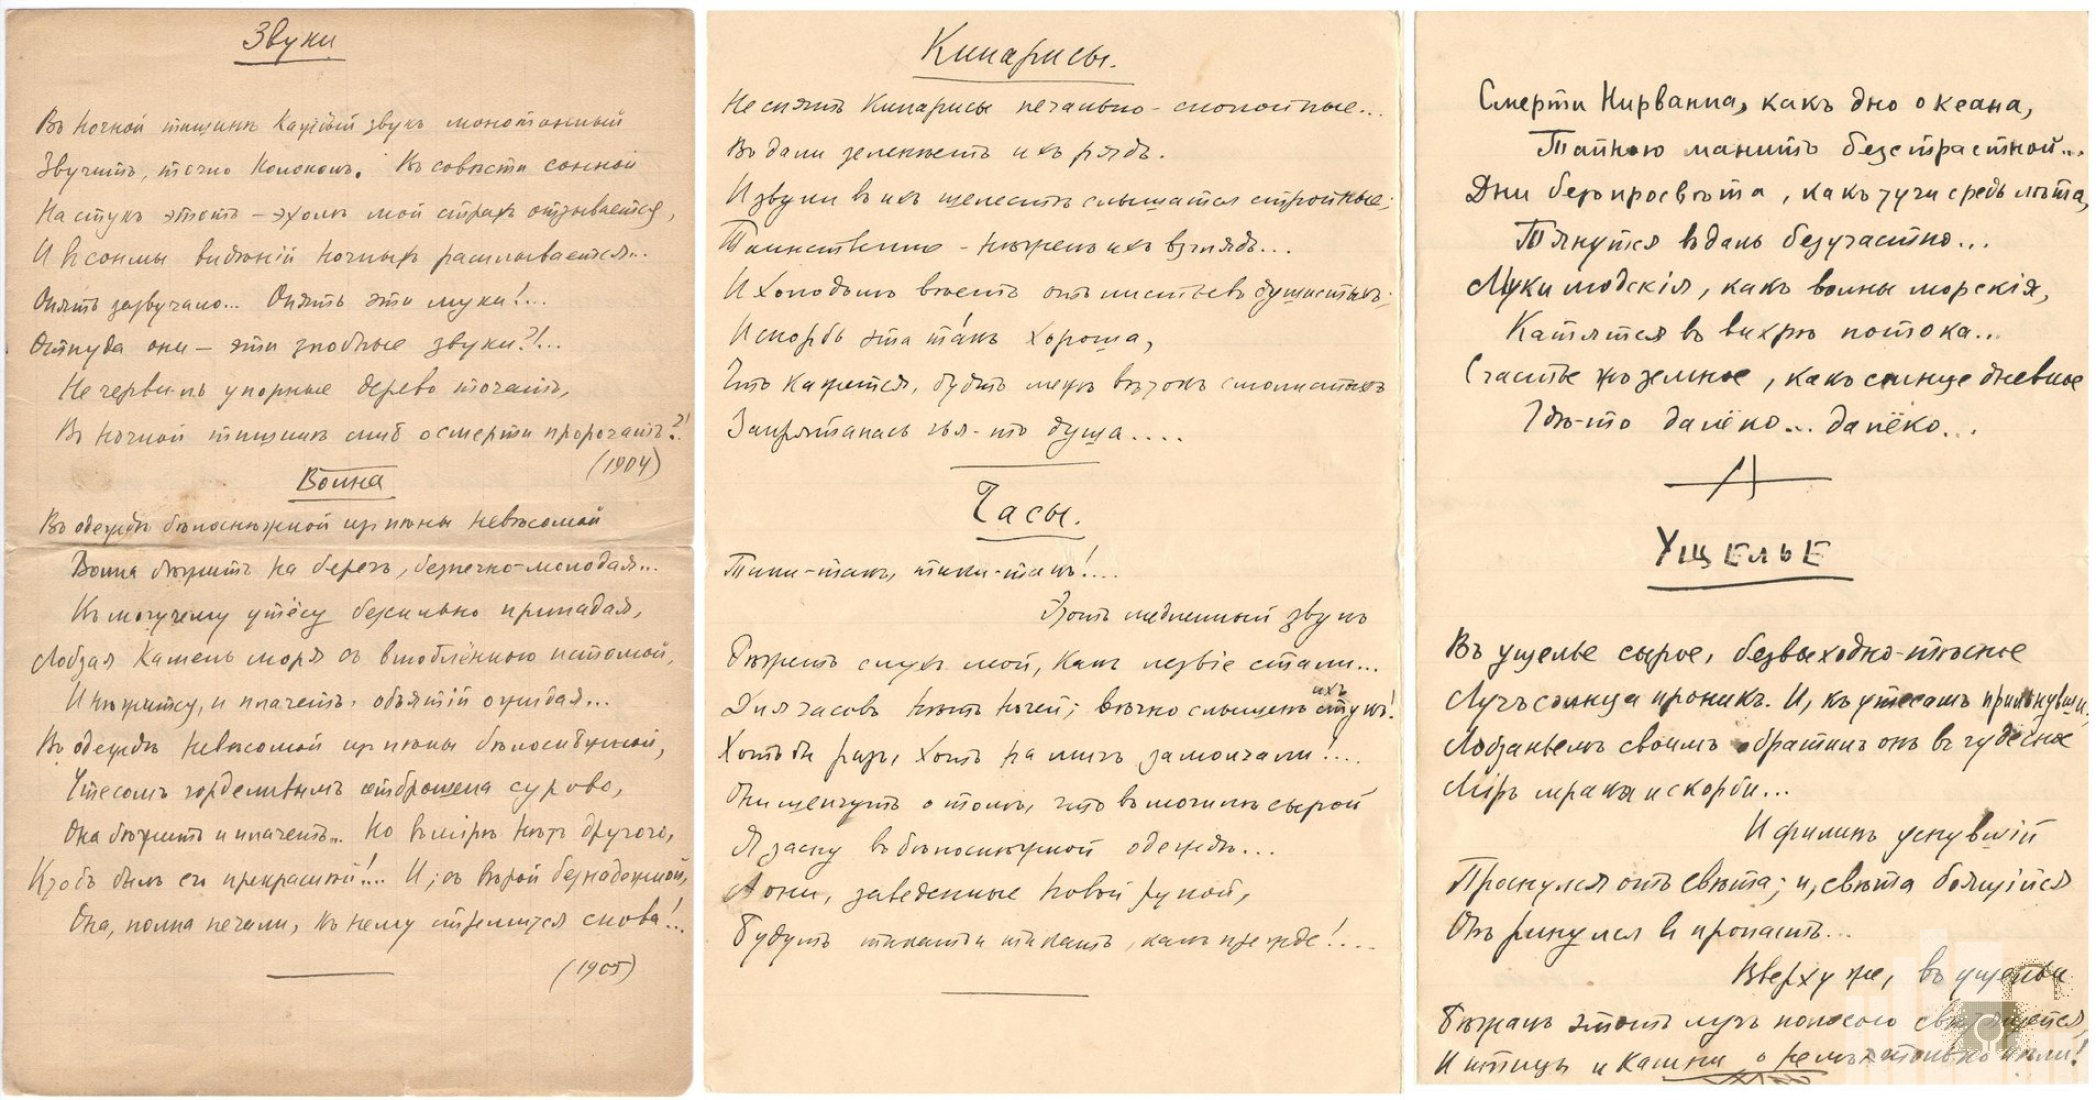 Звуки
Въ ночной тишинѣ каждый звукъ монотонный
Звучитъ, точно колоколъ. Къ совѣсти сонной
На стукъ этотъ – эхомъ мой страхъ отзывается,
И сонмы видѣній ночныхъ расплываются...
Опять зазвучало... Опять эти муки!...
Откуда они – эти злобные звуки?!...
Не черви-ль упорные дерево точатъ,
Въ ночной тишинѣ мнѣ о смерти пророчатъ?!
(1904)
Волна
Въ одеждѣ бѣлоснѣжной изъ пѣны невѣсомой
Волна бѣжитъ на берегъ, безпечно-молодая...
Къ могучему утёсу безсильно припадая,
Лобзая камень моря съ влюблённою истомой,
И нѣжится, и плачетъ, объятій ожидая...
Въ одеждѣ невѣсомой изъ пѣны бѣлоснѣжной,
Утесомъ горделивымъ отброшена сурово,
Она бѣжитъ и плачетъ... Но въ мірѣ нѣтъ другого,
Кто бъ былъ ея прекраснѣй!... И, съ вѣрой безнадежной,
Она, полна печали, къ нему стремится снова!...
(1905)
Кипарисы.
Не спятъ кипарисы печально-спокойные...
Вдали зеленѣетъ ихъ рядъ.
И звуки въ ихъ шелестѣ слышатся стройные;
Таинственно-нѣженъ ихъ взглядъ...
И холодомъ вѣетъ отъ листьевъ душистыхъ;
И скорбь эта та́къ хороша,
Что кажется, будто межъ вѣтокъ смолистыхъ
Запряталась чья-то душа....
Часы.
Тики-такъ, тики-такъ!....
Этотъ медленный звукъ
Рѣжетъ слухъ мой, какъ лезвіе стали...
Для часовъ нѣтъ ночей; вѣчно слышенъ ихъ стукъ!
Хоть бы разъ, хоть на мигъ замолчали!....
Они шепчутъ о томъ, что въ могилѣ сырой
Я засну въ бѣлоснѣжной одеждѣ...
А они, заведенные новой рукой,
Будутъ тикать и тикать, какъ прежде!....
Смерти Нирванна, какъ дно океана,
Тайною манитъ безстрастной...
Дни безъ просвѣта, какъ тучи средь лѣта,
Тянутся вдаль безучастно...
Муки людскія, какъ волны морскія,
Катятся въ вихрѣ потока...
Счастье жъ земное, какъ солнце дневное
Гдѣ-то далёко... далёко...
УЩЕЛЬЕ
Въ ущелье сырое, безвыходно-тѣсное
Лучъ солнца проникъ. И, къ утесамъ прильнувши,
Лобзаньемъ своимъ обратилъ онъ въ чудесное
Міръ мрака и скорби...
И филинъ уснувшій
Проснулся отъ свѣта; и, свѣта боящійся
Онъ ринулся въ пропасть...
Вверху же, въ ущельи
Бѣжалъ этотъ лучъ полосою
И птицы и камни о немъ только пѣли!